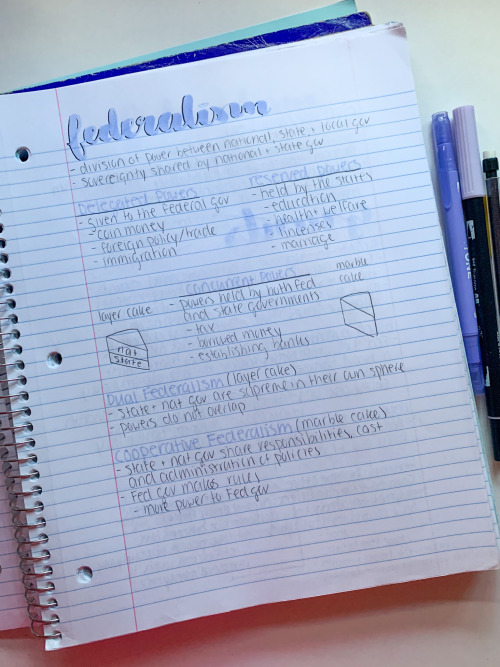 federalism
- division of power between national, state, + local gov
- sovereignty shared by national + state gov
Delegated Powers
- given to the federal gov
- coin money
- foreign policy/trade
- immigration
reserved powers
- held by the states
- education
- health + welfare
- licenses
- marriage
concurrent powers
- powers held by both fed
and state governments
- tax
- borrowed money
- establishing banks
layer cake
nat
state
marble
cake
Dual Federalism (layer cake)
- state + nat gov are supreme in their own sphere
- powers do not overlap
Cooperative Federalism (marble cake)
- state + nat gov share responsibilities, cost
and administration of policies
- Fed gov makes rules
- more power to Fed gov